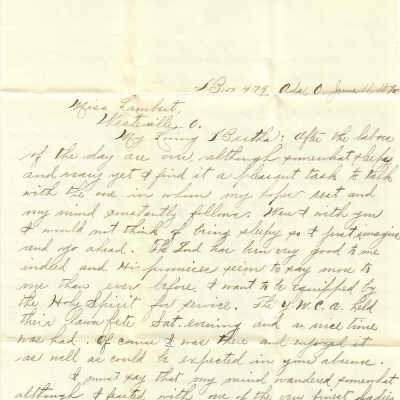 Box 479, Ada, O. June 11,
Miss Lambert,
Westerville, O.
My Loving Bertha: After the labors
of the day are over, although somewhat sleepy
and weary yet I find it a pleasant task to talk
with the one in whom my hopes rest and
my mind constantly follows. Were I with you
I would not think of being sleepy so I just imagine
and go ahead. The Lord has been very good to me
indeed and His promises seem to say more to
me than ever before. I want to be equipped by
the Holy Spirit for service. The Y.M.C.A. held
their lawn fete Sat. evening and a nice time
was had. Of course I was there and enjoyed it
as well as could be expected in your absence.
I must say that my mind wandered somewhat
although I feasted with one of the very finest ladies